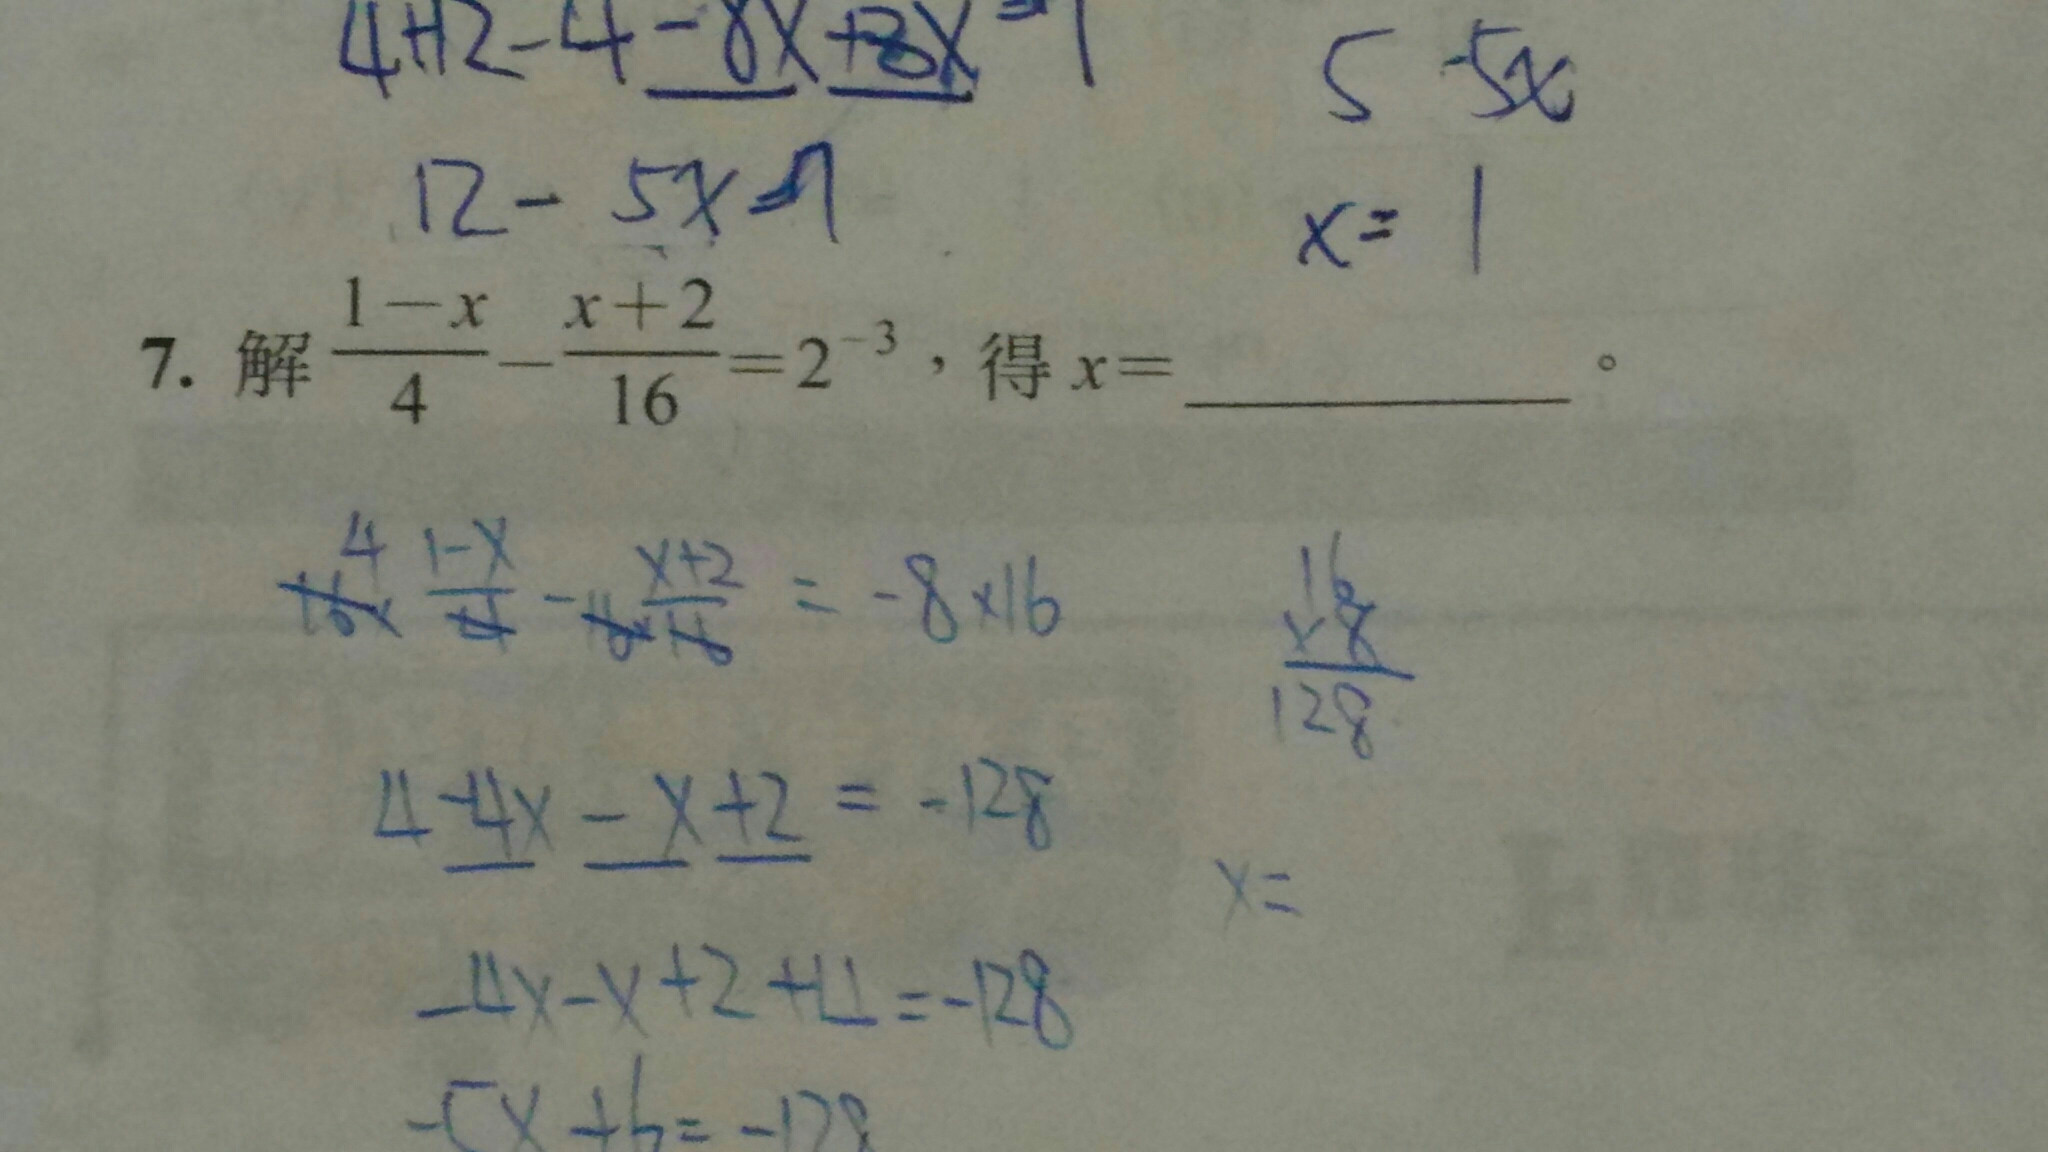 4+12-4-8x+3x=7
5 -5x
12-5x=7
x=1
7. 解 \frac{1-x}{4}-\frac{x+2}{16}=2^{-3}，得 x=________。
16^4×\frac{1-x}{4}-16×\frac{x+2}{16}=-8×16
16
×8
128
4-4x-x+2=-128
x=
-4x-x+2+4=-128
-5x+6=-128